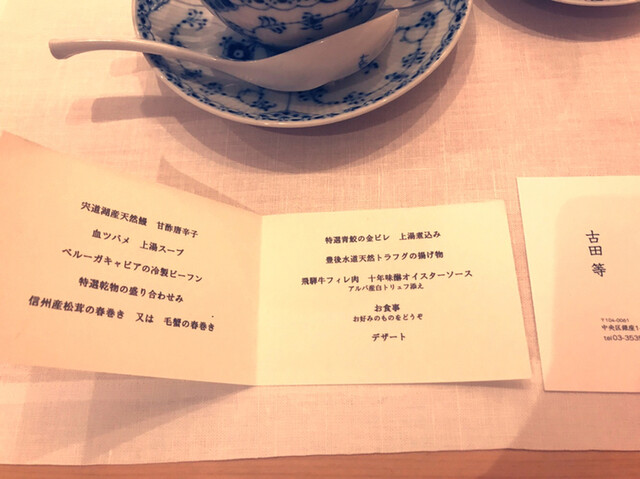 宍道湖産天然鰻　甘酢唐辛子
血ツバメ　上湯スープ
ベルーガキャビアの冷製ビーフン
特選乾物の盛り合わせみ
信州産松茸の春巻き　又は　毛蟹の春巻き
特選青鮫の金ビレ　上湯煮込み
豊後水道天然トラフグの揚げ物
飛騨牛フィレ肉　十年味醂オイスターソース
アルバ産白トリュフ添え
お食事
お好みのものをどうぞ
デザート
古田 等
〒104-0061
中央区銀座1
Tel 03-353